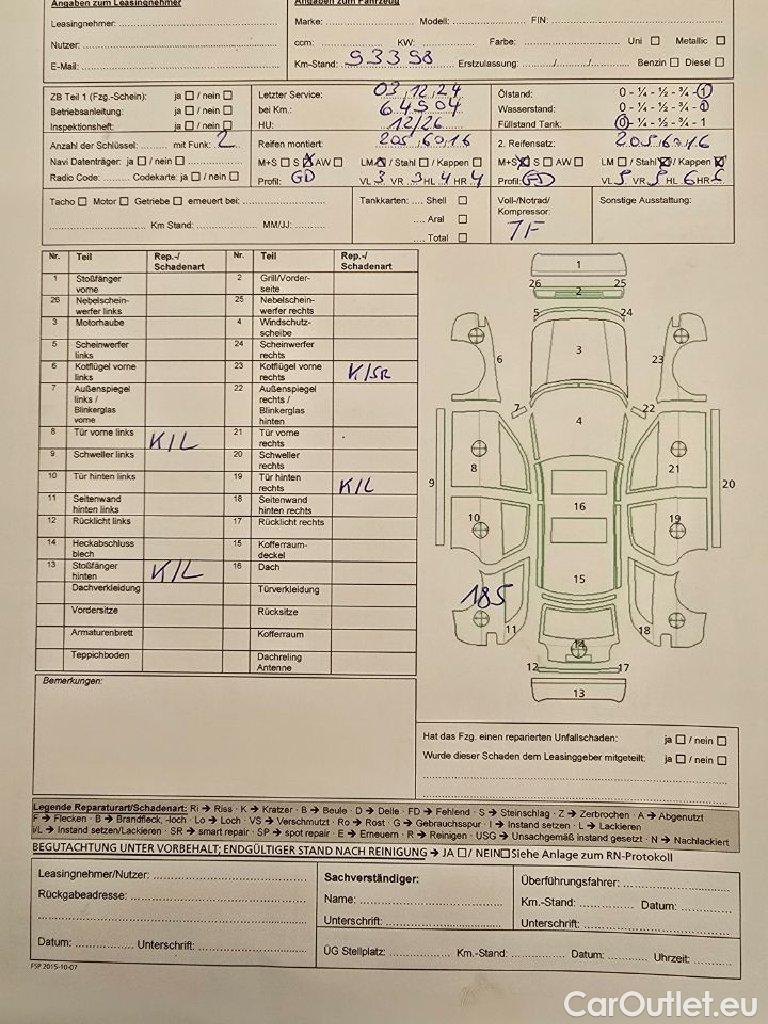 Angaben zum Leasingnehmer
Angaben zum Fahrzeug
Leasingnehmer:
Marke: Modell: FIN:
Nutzer:
ccm: KW: Farbe: Uni ☐ Metallic ☐
E-Mail:
Km-Stand: 93398 Erstzulassung: / / Benzin ☐ Diesel ☐
ZB Teil 1 (Fzg.-Schein): ja ☐ / nein ☐
Betriebsanleitung: ja ☐ / nein ☐
Inspektionsheft: ja ☐ / nein ☐
Letzter Service: 03.12.24
bei Km.: 64504
HU: 12/26
Ölstand: 0 - ¼ - ½ - ¾ - 1
Wasserstand: 0 - ¼ - ½ - ¾ - 1
Füllstand Tank: 0 - ¼ - ½ - ¾ - 1
Anzahl der Schlüssel: mit Funk: 2
Navi Datenträger: ja ☐ / nein ☐
Radio Code: Codekarte: ja ☐ / nein ☐
Reifen montiert: 205,60,16
M+S ☐ S ☒ AW ☐ LM ☒ / Stahl ☐ / Kappen ☐
Profil: GD VL 3 VR 3 HL 4 HR 4
2. Reifensatz: 205,60,16
M+S ☒ S ☐ AW ☐ LM ☐ / Stahl ☒ / Kappen ☒
Profil: GD VL 5 VR 5 HL 6 HR
Tacho ☐ Motor ☐ Getriebe ☐ erneuert bei:
Km Stand: MM/JJ:
Tankkarten: Shell ☐
Aral ☐
Total ☐
Voll-/Notrad/
Kompressor:
TF
Sonstige Ausstattung:
Nr. Teil Rep.-/ Schadenart Nr. Teil Rep.-/ Schadenart
1 Stoßfänger vorne 2 Grill/Vorder-seite
26 Nebelschein-werfer links 25 Nebelschein-werfer rechts
3 Motorhaube 4 Windschutz-scheibe
5 Scheinwerfer links 24 Scheinwerfer rechts
6 Kotflügel vorne links 23 Kotflügel vorne rechts K/SR
7 Außenspiegel links / Blinkerglas vorne 22 Außenspiegel rechts / Blinkerglas hinten
8 Tür vorne links K/L 21 Tür vorne rechts -
9 Schweller links 20 Schweller rechts
10 Tür hinten links 19 Tür hinten rechts K/L
11 Seitenwand hinten links 18 Seitenwand hinten rechts
12 Rücklicht links 17 Rücklicht rechts
14 Heckabschluss blech 15 Kofferraum-deckel
13 Stoßfänger hinten K/L 16 Dach
Dachverkleidung Türverkleidung
Vordersitze Rücksitze
Armaturenbrett Kofferraum
Teppichboden Dachreling Antenne
1
26 25
2
5 24
3
6 23
7 22
4
8 21
9 20
16
10 19
15
185
11 18
14
12 17
13
Bemerkungen:
Hat das Fzg. einen reparierten Unfallschaden: ja ☐ / nein ☐
Wurde dieser Schaden dem Leasinggeber mitgeteilt: ja ☐ / nein ☐
Legende Reparaturart/Schadenart: Ri → Riss · K → Kratzer · B → Beule · D → Delle · FD → Fehlend · S → Steinschlag · Z → Zerbrochen · A → Abgenutzt
F → Flecken · B → Brandfleck, -loch · Lo → Loch · VS → Verschmutzt · Ro → Rost · G → Gebrauchsspur · I → Instand setzen · L → Lackieren
I/L → Instand setzen/Lackieren · SR → smart repair · SP → spot repair · E → Erneuern · R → Reinigen · USG → Unsachgemäß instand gesetzt · N → Nachlackiert
BEGUTACHTUNG UNTER VORBEHALT; ENDGÜLTIGER STAND NACH REINIGUNG → JA ☐ / NEIN ☐ Siehe Anlage zum RN-Protokoll
Leasingnehmer/Nutzer:
Rückgabeadresse:
Datum: Unterschrift:
Sachverständiger:
Name:
Unterschrift:
Überführungsfahrer:
Km.-Stand: Datum:
Unterschrift:
ÜG Stellplatz: Km.-Stand: Datum: Uhrzeit:
FSP 2015-10-07
CarOutlet.eu